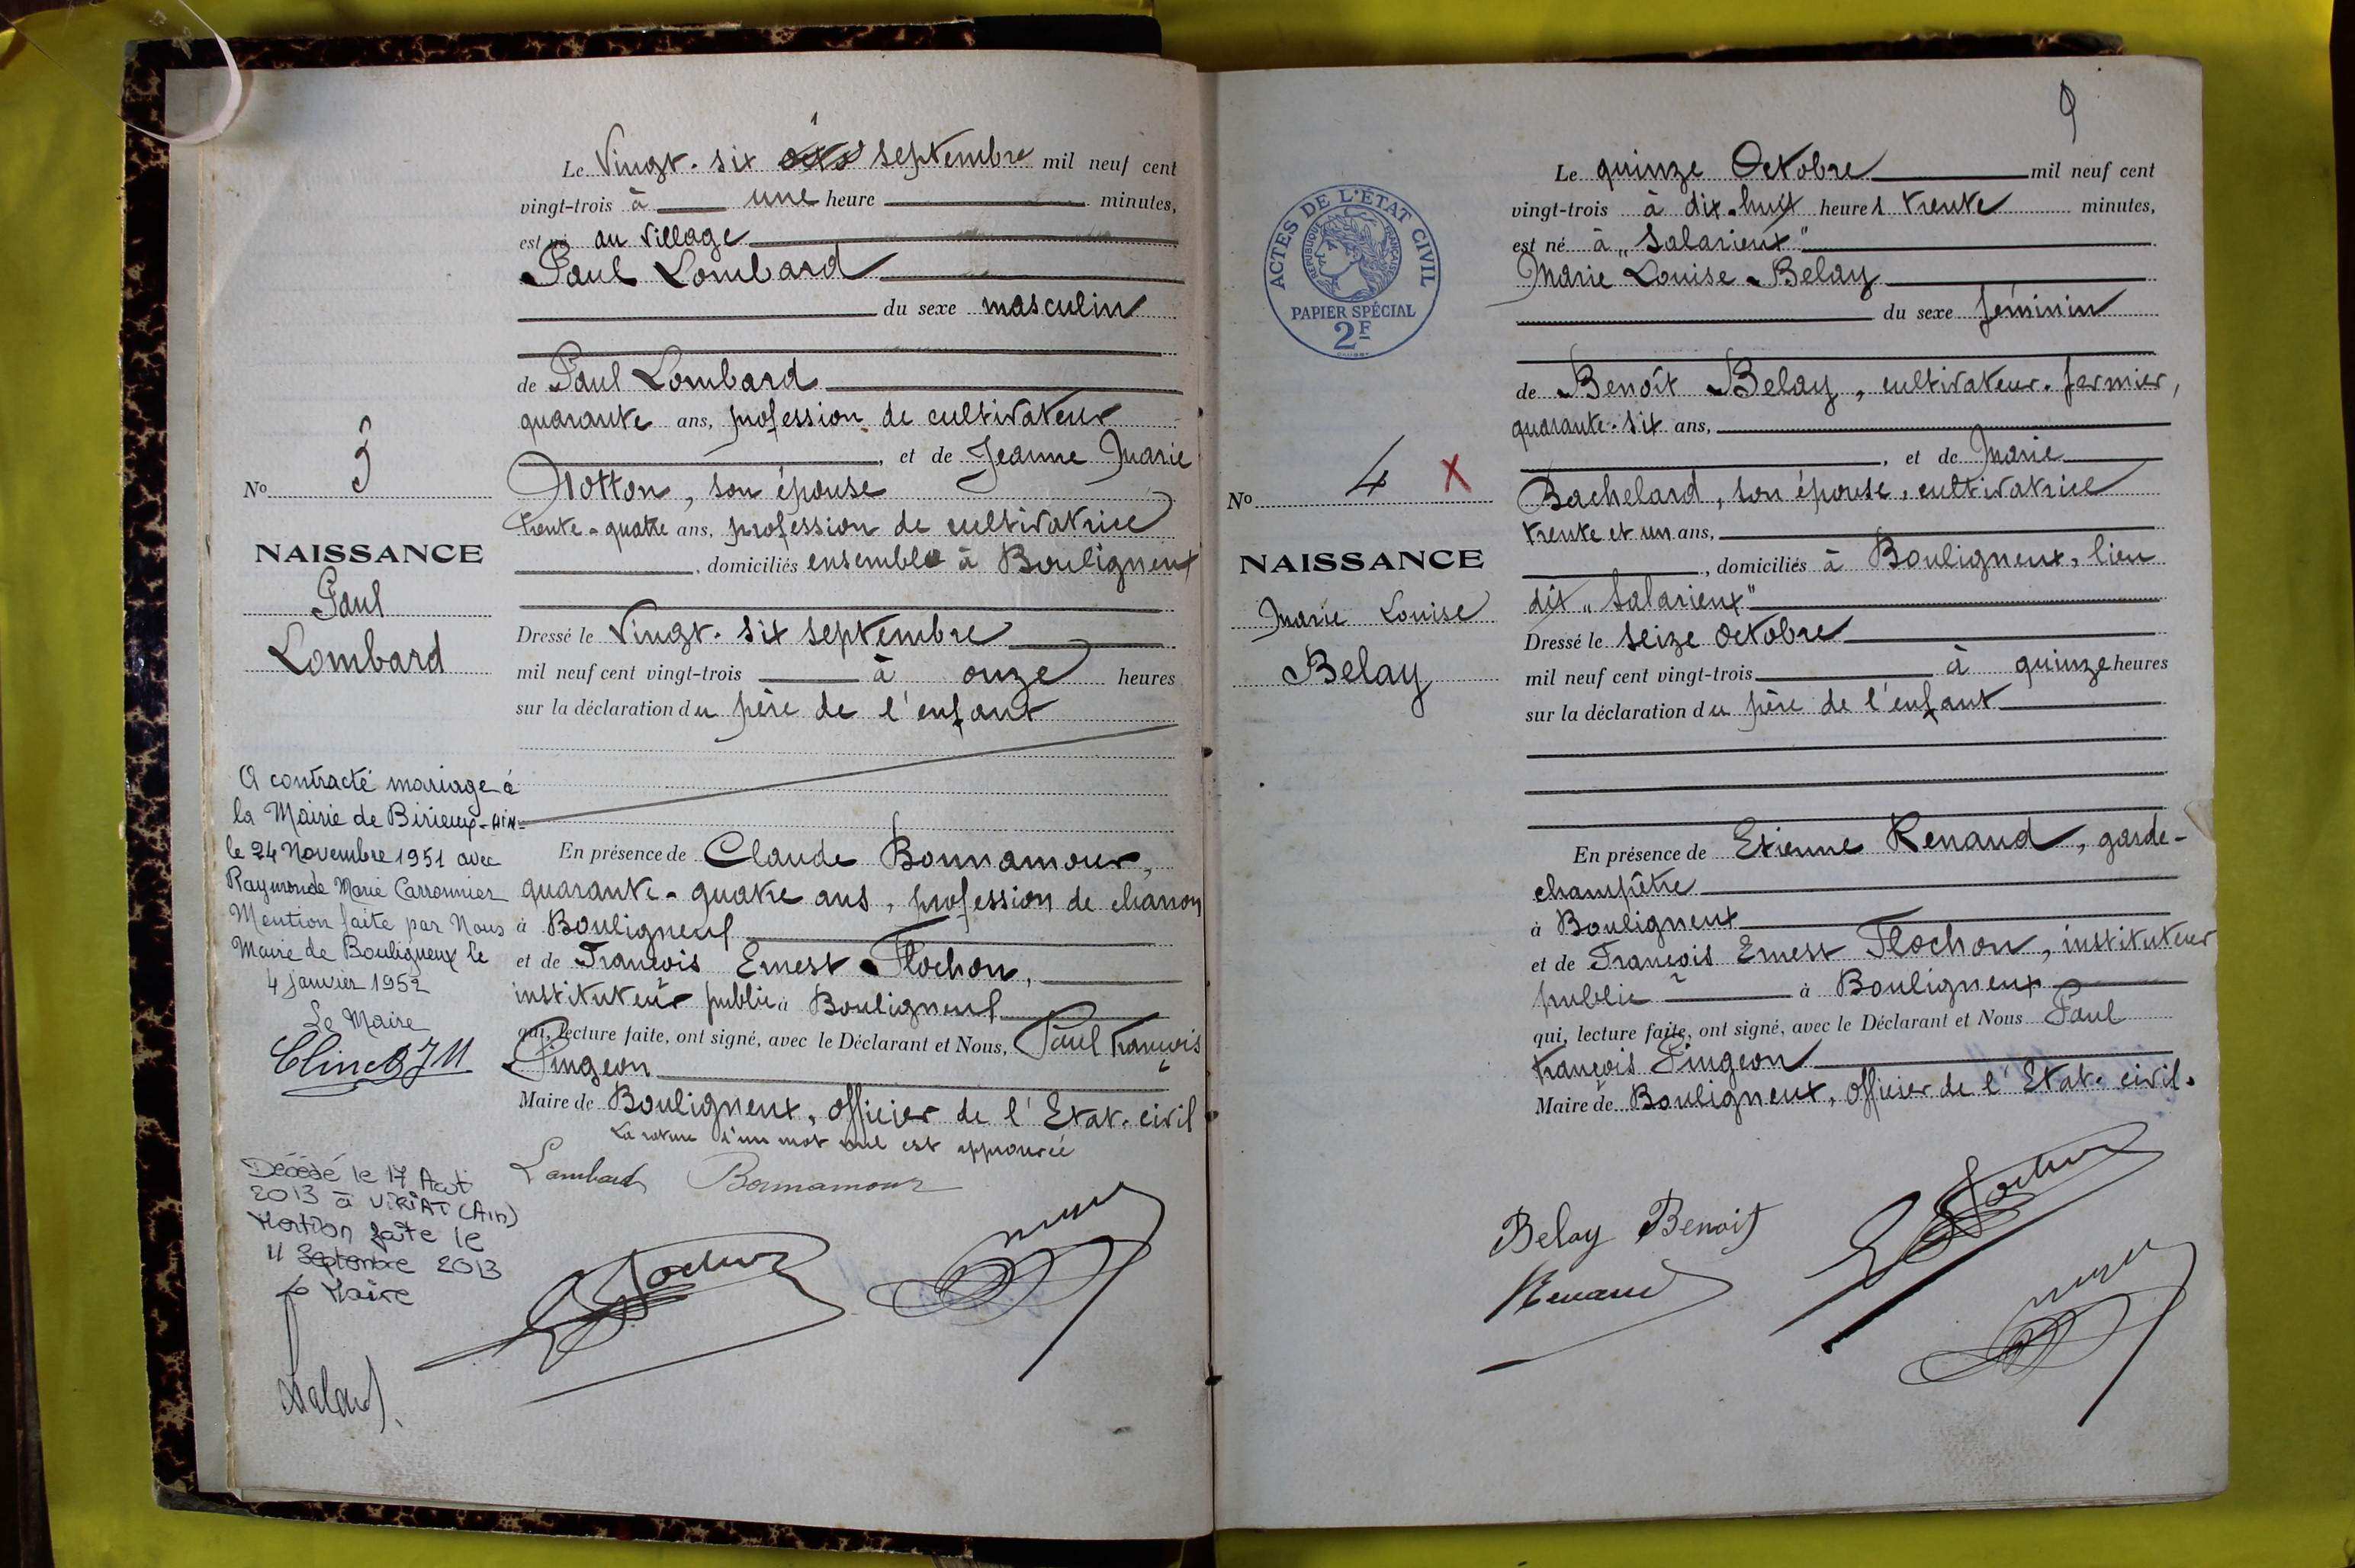 Le Vingt-six septembre mil neuf cent
vingt-trois à une heure minutes,
est né au village
Paul Lombard
du sexe masculin
de Paul Lombard
quarante ans, profession de cultivateur
, et de Jeanne Marie
son épouse
trente-quatre ans, profession de cultivatrice
, domiciliés ensemble à Bouligneux
Dressé le Vingt-six septembre
mil neuf cent vingt-trois à onze heures
sur la déclaration du père de l'enfant
En présence de Claude Bonnamour,
quarante-quatre ans, profession de charron
à Bouligneux
et de François Ernest Flochon,
instituteur public à Bouligneux
qui, lecture faite, ont signé, avec le Déclarant et Nous, Paul François
Pingeon
Maire de Bouligneux, Officier de l'Etat-civil
La rature d'un mot nul est approuvée
Lombard Bonnamour
No 3
NAISSANCE
Paul
Lombard
A contracté mariage à
la Mairie de Birieux-AIN-
le 24 Novembre 1951 avec
Raymonde Marie Carronnier
Mention faite par Nous
Maire de Bouligneux le
4 Janvier 1952
Le Maire
Décédé le 17 Août
2013 à VIRIAT (Ain)
Mention faite le
11 Septembre 2013
Le Maire
9
ACTES DE L'ÉTAT CIVIL
RÉPUBLIQUE FRANÇAISE
PAPIER SPÉCIAL
2F
Le quinze Octobre mil neuf cent
vingt-trois à dix-huit heures trente minutes,
est né à "Salarieux"
Marie Louise Belay
du sexe féminin
de Benoît Belay, cultivateur-fermier,
quarante-six ans,
, et de Marie
Bachelard, son épouse, cultivatrice
trente et un ans,
, domiciliés à Bouligneux, lieu
dit "Salarieux"
Dressé le seize Octobre
mil neuf cent vingt-trois à quinze heures
sur la déclaration du père de l'enfant
En présence de Etienne Renaud, garde-
champêtre
à Bouligneux
et de François Ernest Flochon, instituteur
public à Bouligneux
qui, lecture faite, ont signé, avec le Déclarant et Nous Paul
François Pingeon
Maire de Bouligneux, Officier de l'Etat-civil.
Belay Benoit
Renaud
No 4 X
NAISSANCE
Marie Louise
Belay